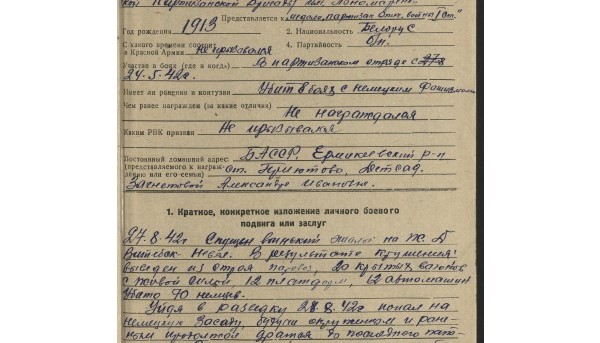 кой партизанской бригады им. Пономарен-
Представляется к медали „партизан отеч. война I ст."
Год рождения 1913 2. Национальность Белорус
С какого времени состоит
в Красной Армии не призывался 4. Партийность б/п.
Участие в боях (где и когда) В партизанском отряде с
24.5.42г.
Имеет ли ранения и контузии Убит в боях с немецким фашизмом
Чем ранее награжден (за какие отличия) Не награждался
Каким РВК призван Не призывался
Постоянный домашний адрес БАССР, Ермикеевский р-н
(представляемого к награж-
дению или его семьи) ст. Приютово, Детсад.
Александре Ивановне.
1. Краткое, конкретное изложение личного боевого
подвига или заслуг
27.8.42г Спущен вражеский эшелон на Ж.Д
Витебск-Невель. В результате крушения:
выведен из строя паровоз, 20 крытых вагонов
с живой силой, 12 платформ, 12 автомашин
Убито 70 немцев.
Уйдя в разведку 28.8.42г попал на
немецкую засаду, будучи окружен и ране-
ным продолжал драться до последнего пат-